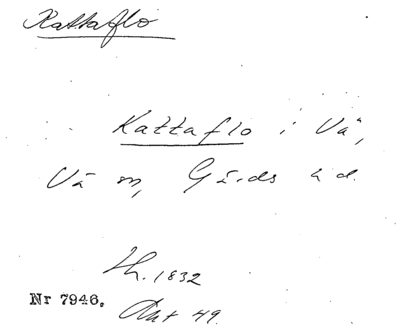 Kattaflo
Kattaflo i Vä,
Vä sn, Gärds hd.
Th. 1832
Nr 7946.
Akt 49